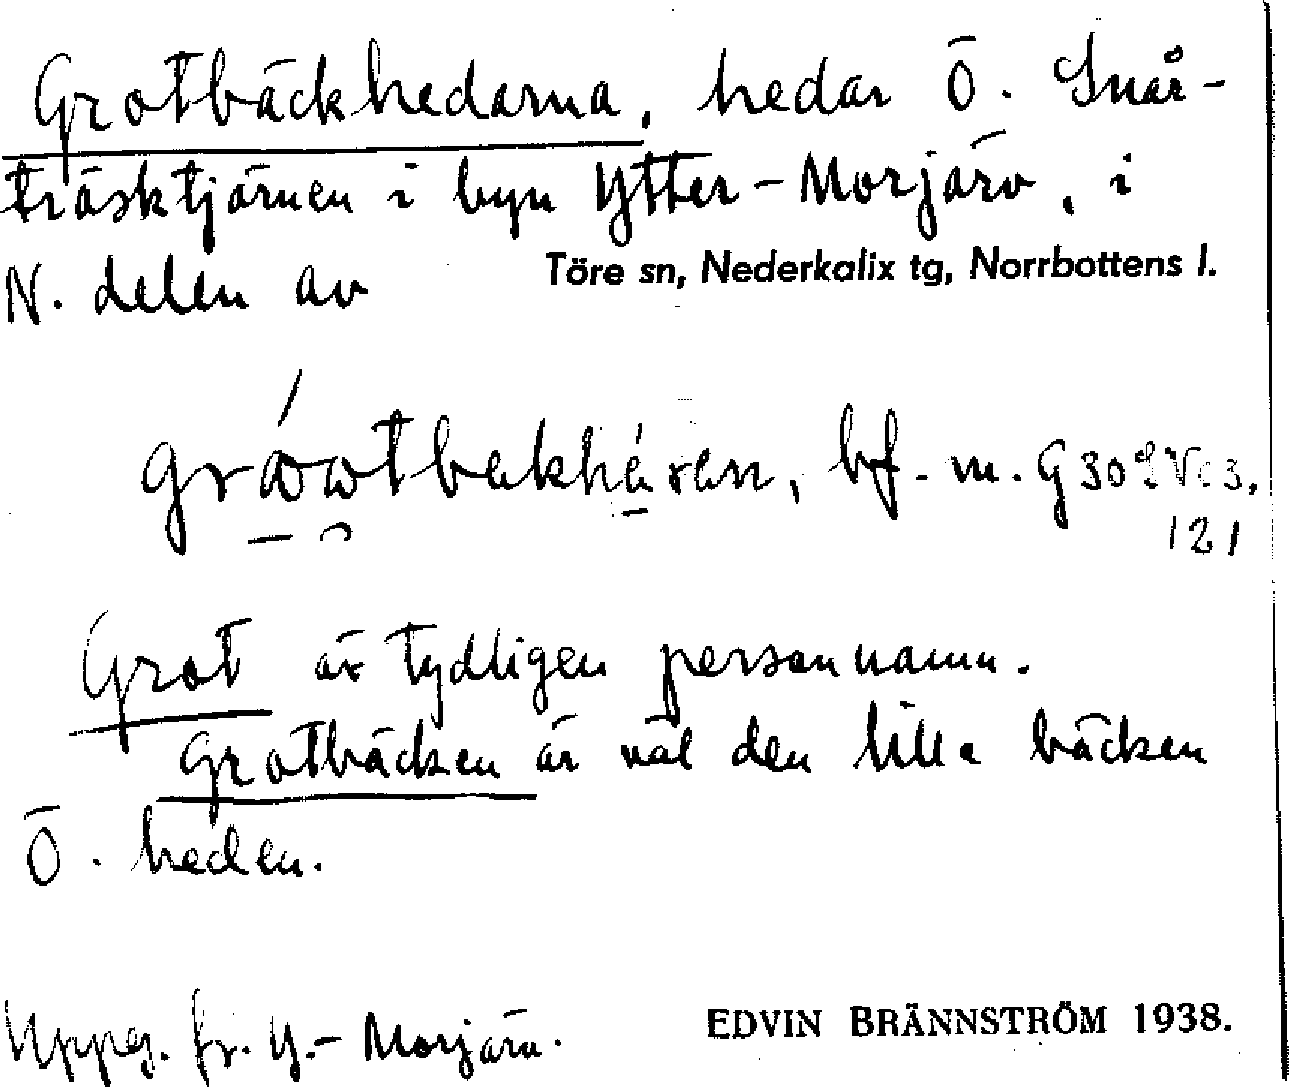 Grotbäckhedarna, hedar Ö. Snår-
träsktjärnen i byn Ytter-Morjärv, i
N. delen av Töre sn, Nederkalix tg, Norrbottens l.
bf. m. G 30
121
Grot är tydligen personnamn.
Grotbäcken är väl den lilla bäcken
Ö. heden.
Uppg. fr. Y.-Morjärv. EDVIN BRÄNNSTRÖM 1938.